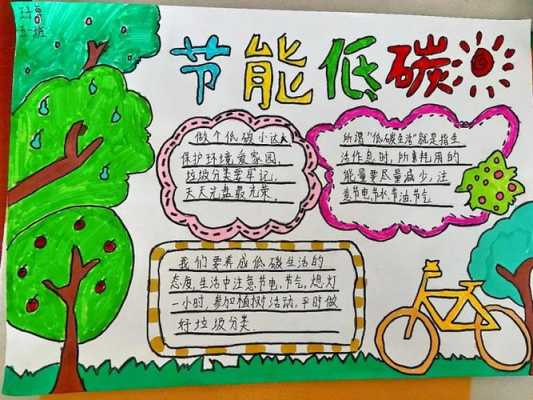 节能低碳
做个低碳小达人
保护环境,爱家园,
垃圾分类要牢记,
天天光盘最光荣.
所谓"低碳生活"就是指生
活作息时,所要耗用的
能量要尽量减少,注
意节电,节水,节油,节气
我们要养成低碳生活的
态度,生活中注意节电,节气,熄灯
一小时,参加植树活动,平时做
好垃圾分类.